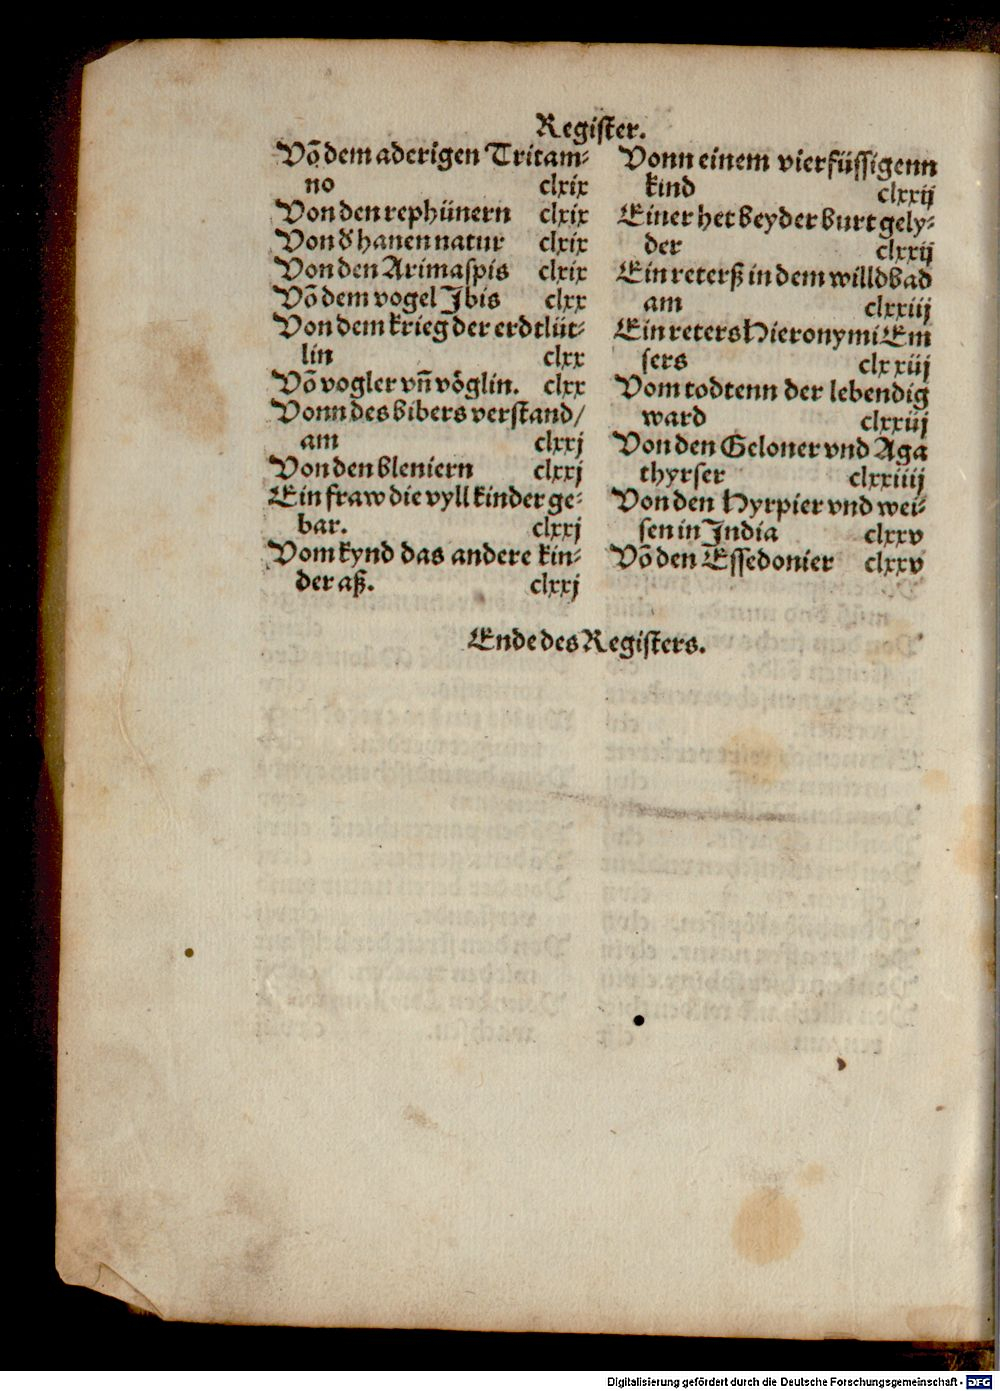 Register.
Võ dem aderigen Tritam⸗
no clxix
Von den rephünern clxix
Von d̕ hanen natur clxix
Von den Arimaspis clxix
Võ dem vogel Ibis clxx
Von dem krieg der erdtlüt⸗
lin clxx
Võ vogler vñ vöglin. clxx
Vonn des bibers verstand/
am clxxj
Von den bleniern clxxj
Ein fraw die vyll kinder ge⸗
bar. clxxj
Vom kynd das andere kin⸗
der aß. clxxj
Vonn einem vierfüssigenn
kind clxxij
Einer het beyder burt gely⸗
der clxxij
Ein reterß in dem willdbad
am clxxiij
Ein reters Hieronymi Em
sers clxxiij
Vom todtenn der lebendig
ward clxxiij
Von den Geloner vnd Aga
thyrser clxxiiij
Von den Hyrpier vnd wei⸗
sen in India clxxv
Võ den Essedonier clxxv
Ende des Registers.
Digitalisierung gefördert durch die Deutsche Forschungsgemeinschaft - DFG